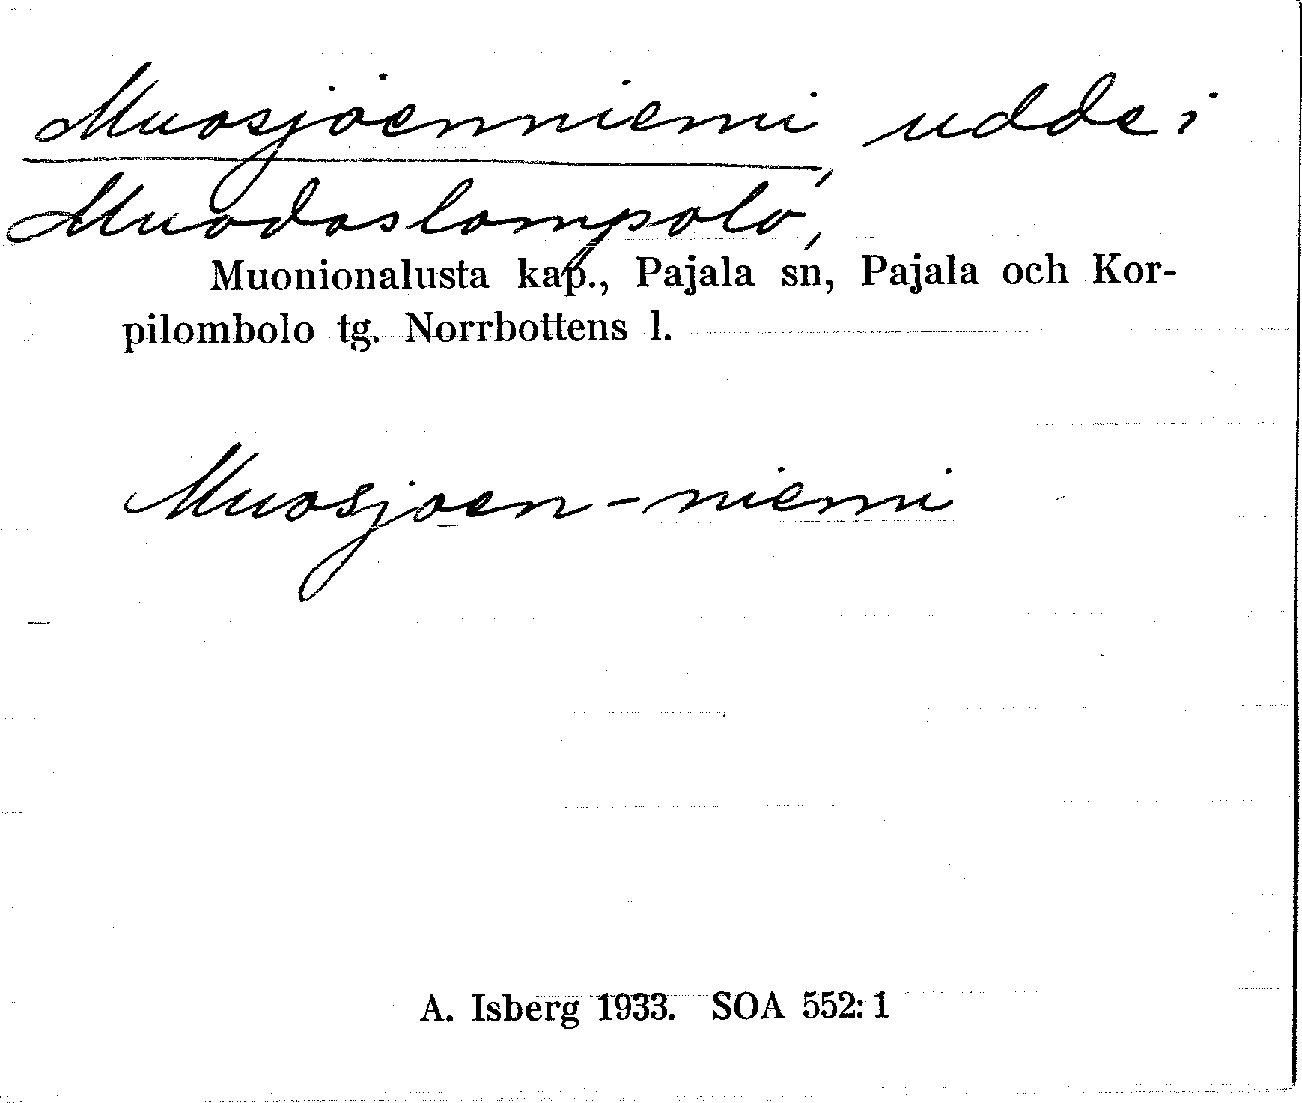 Muosjoenniemi, udde i
Muodoslompolo,
Muonionalusta kap., Pajala sn, Pajala och Kor-
pilombolo tg. Norrbottens l.
Muosjoen-niemi
A. Isberg 1933. SOA 552:1